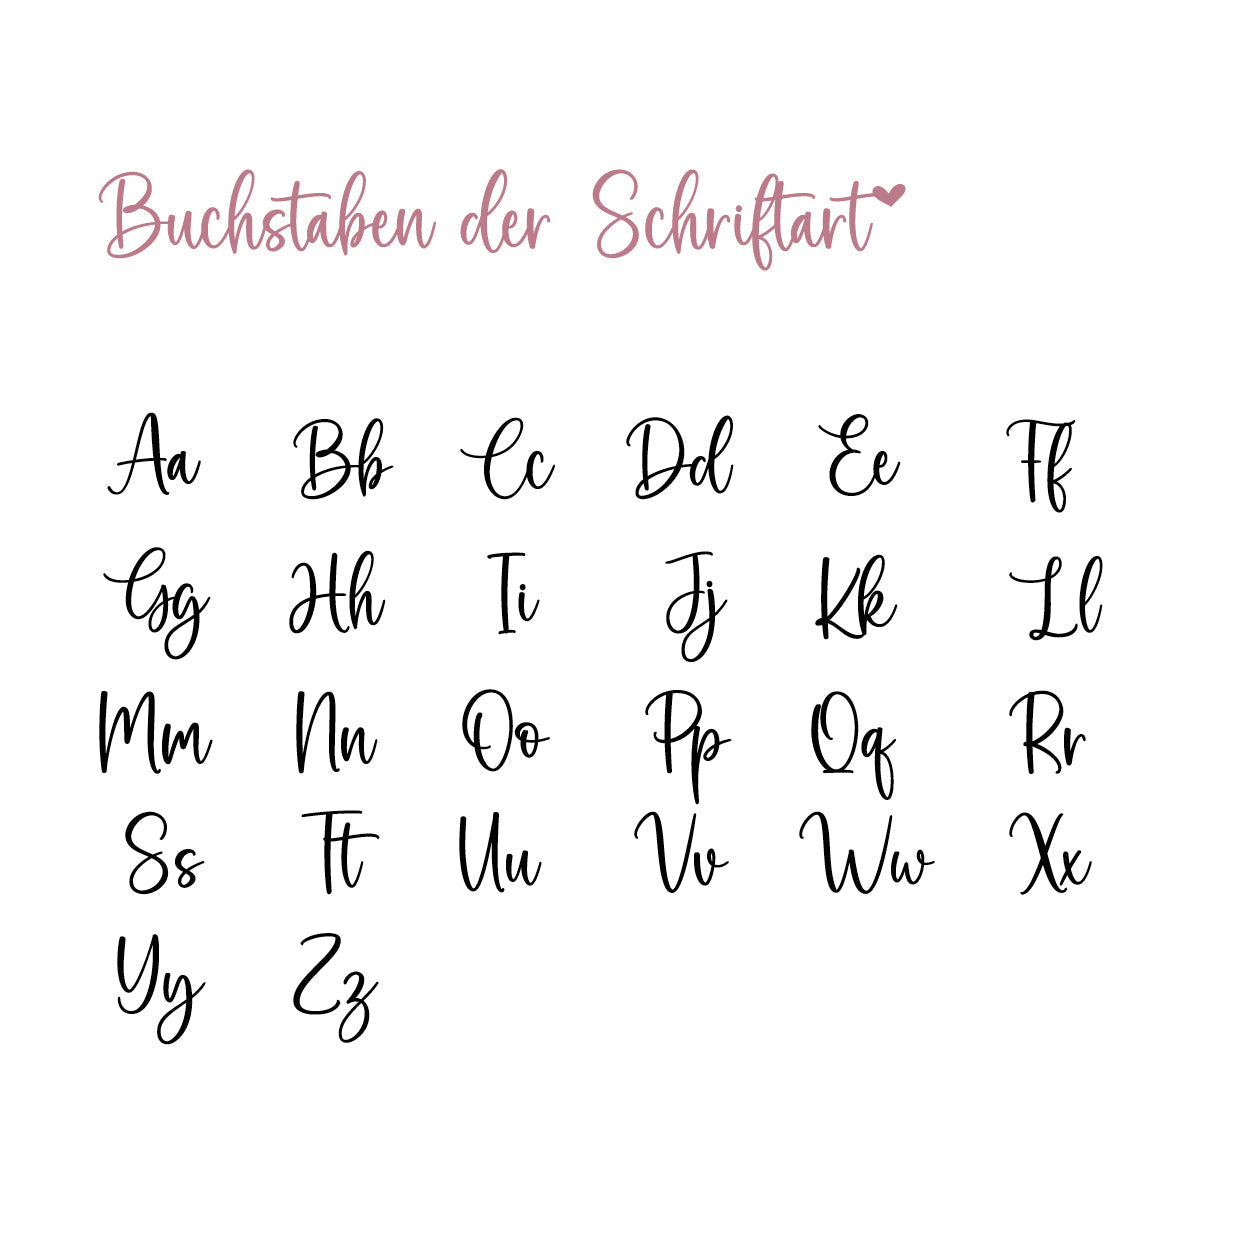 Buchstaben der Schriftart
Aa Bb Cc Dd Ee Ff
Gg Hh Ii Jj Kk Ll
Mm Nn Oo Pp Qq Rr
Ss Tt Uu Vv Ww Xx
Yy Zz